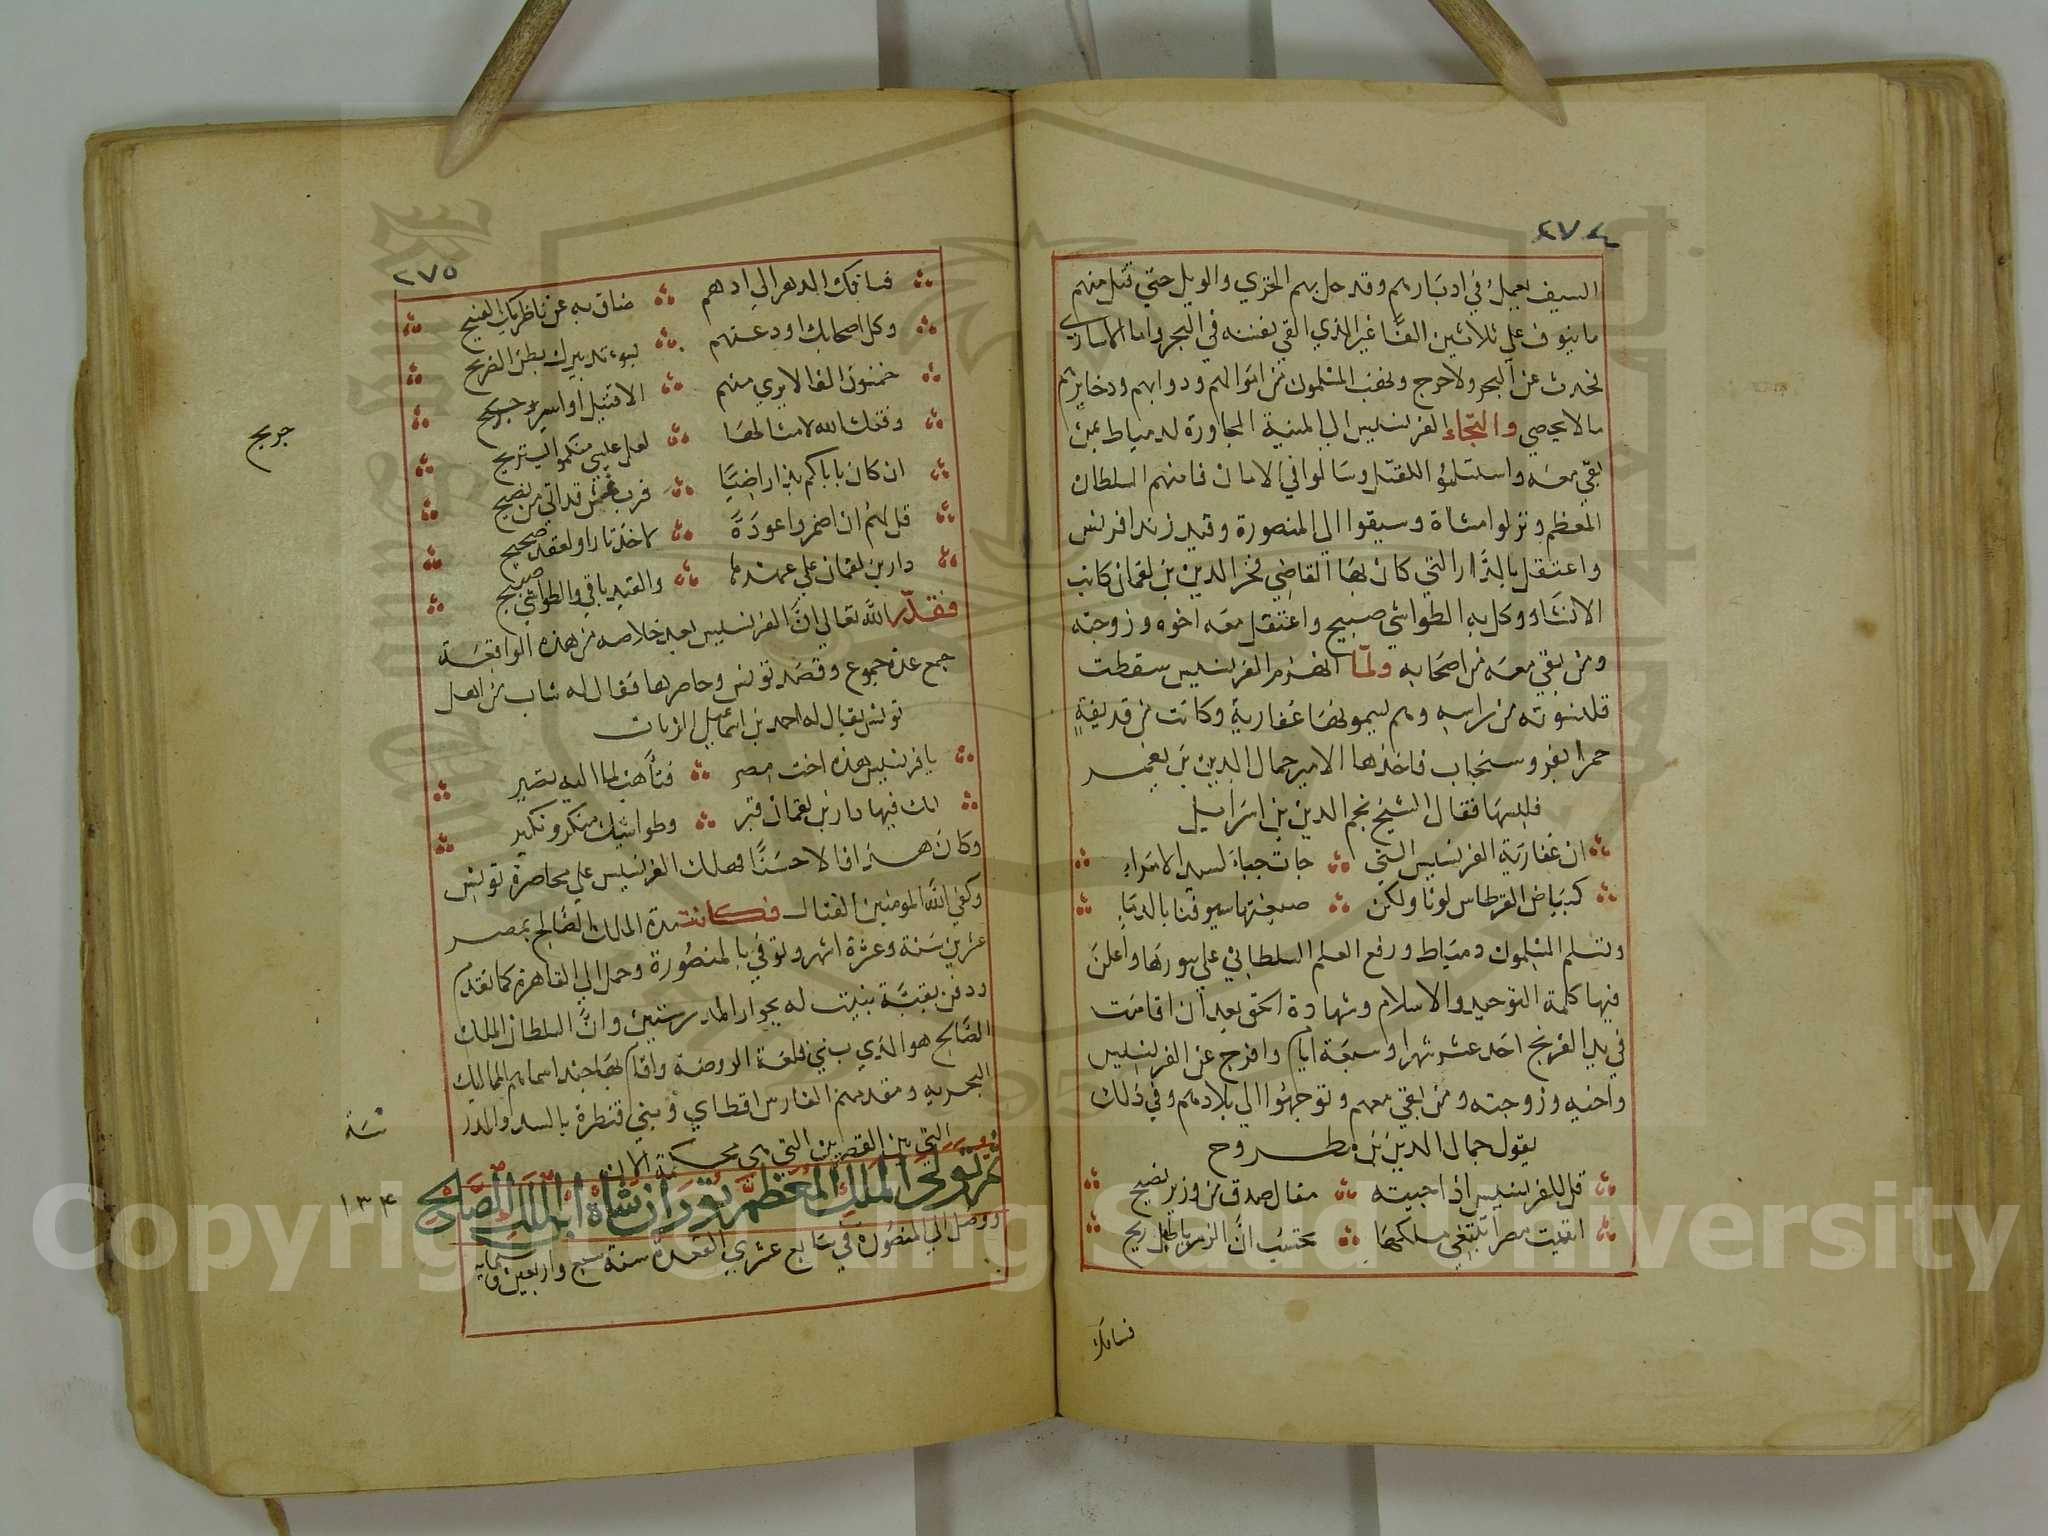 ٢٧٤
السيف يعمل في ادبارهم وقد حل بهم الخزي والويل حتي قتل منهم
ما ينوف علي ثلاثين الفًا غير الذي القي بنفسه في البحر واما الاساري
فحدث عن البحر ولا حرج وغنم المسلمون من اموالهم ودوابهم وذخايرهم
ما لا يحصي والتجاء الفرنسيس الي المنية المجاورة لدمياط بمن
بقي معه واستسلموا للقتل وسالوا في الامان فامنهم السلطان
المعظم ونزلوا مشاة وسيقوا الي المنصورة وقيد زيد افرنس
واعتقل بالدار التي كان بها القاضي فخر الدين بن لقمان كاتب
الانشاء ووكل به الطواشي صبيح واعتقل معه اخوه وزوجته
ومن بقي معه من اصحابه ولما انهزم الفرنسيس سقطت
قلنسوته من راسه وهم يسمونها غفارية وكانت من قديفة
حمرا بفرو سنجاب فاخذها الامير جمال الدين بن يغمر
فلبسها فقال الشيخ نجم الدين بن اسرايل
ان غفارية الفرنسيس التي جات حباء لسيد الامراء
كبياض القرطاس لونا ولكن صبغتها سيوفنا بالدماء
وتسلم المسلمون دمياط ورفع العلم السلطاني علي سورها واعلن
فيها كلمة التوحيد والاسلام وشهادة الحق بعد ان اقامت
في يد الفرنج احد عشر شهرا وسبعة ايام وافرج عن الفرنسيس
واخيه وزوجته ومن بقي معهم وتوجهوا الي بلادهم وفي ذلك
يقول جمال الدين بن مطروح
قل للفرنسيس اذا جيته مقال صدق من وزير نصيح
اتيت مصرا تبتغي ملكها تحسب ان الزمر يا طبل ريح
فساقك
٢٧٥
فساقك الدهر الي ادهم ضاق به عن ناظريك الفسيح
وكل اصحابك اودعتهم بسوء تدبيرك بطن الضريح
خمسون الفا لا يري منهم الا قتيل او اسير جريح
جريح
وفقك الله لامثالها لعل عيسي منكموا يستريح
ان كان باباكم بذا راضيًا فرب غش قد اتي من نصيح
قل لهم ان اضمروا عودةً لاخذ ثار او لعقد صحيح
دار بن لقمان علي عهدها والقيد باقي والطواشي صبيح
فقدّر الله تعالي ان الفرنسيس بعد خلاصه من هذه الواقعة
جمع عدة جموع وقصد تونس وحاصرها فقال له شاب من اهل
تونس يقال له احمد بن اسمعيل الزيات
يا فرنسيس هذه اخت مصر فتأهب لما اليه تصير
لك فيها دار بن لقمان قبر وطواشيك منكر ونكير
وكان هذا فالا حسنًا فهلك الفرنسيس علي محاصرة تونس
وكفي الله المومنين القتال فكانت مدة الملك الصالح بمصر
عشرين سنة وعشرة اشهر وتوفي بالمنصورة وحمل الي القاهرة كما تقدم
ودفن بقبة بنيت له بجوار المدرستين وان السلطان الملك
الصالح هو الذي بني قلعة الروضة واقام بها جندا سماهم المماليك
البحريه ومقدمهم الفارس اقطاي وبني قنطرة بالسد والمدر
التي بين القصرين التي هي محكمة الان
سنة
ثم تولي الملك المعظم توران شاة ابن الملك الصالح
١٣٤
ووصل الي المنصورة في سابع عشري القعدة سنة سبع واربعين وستمايه
Copyright © King Saud University